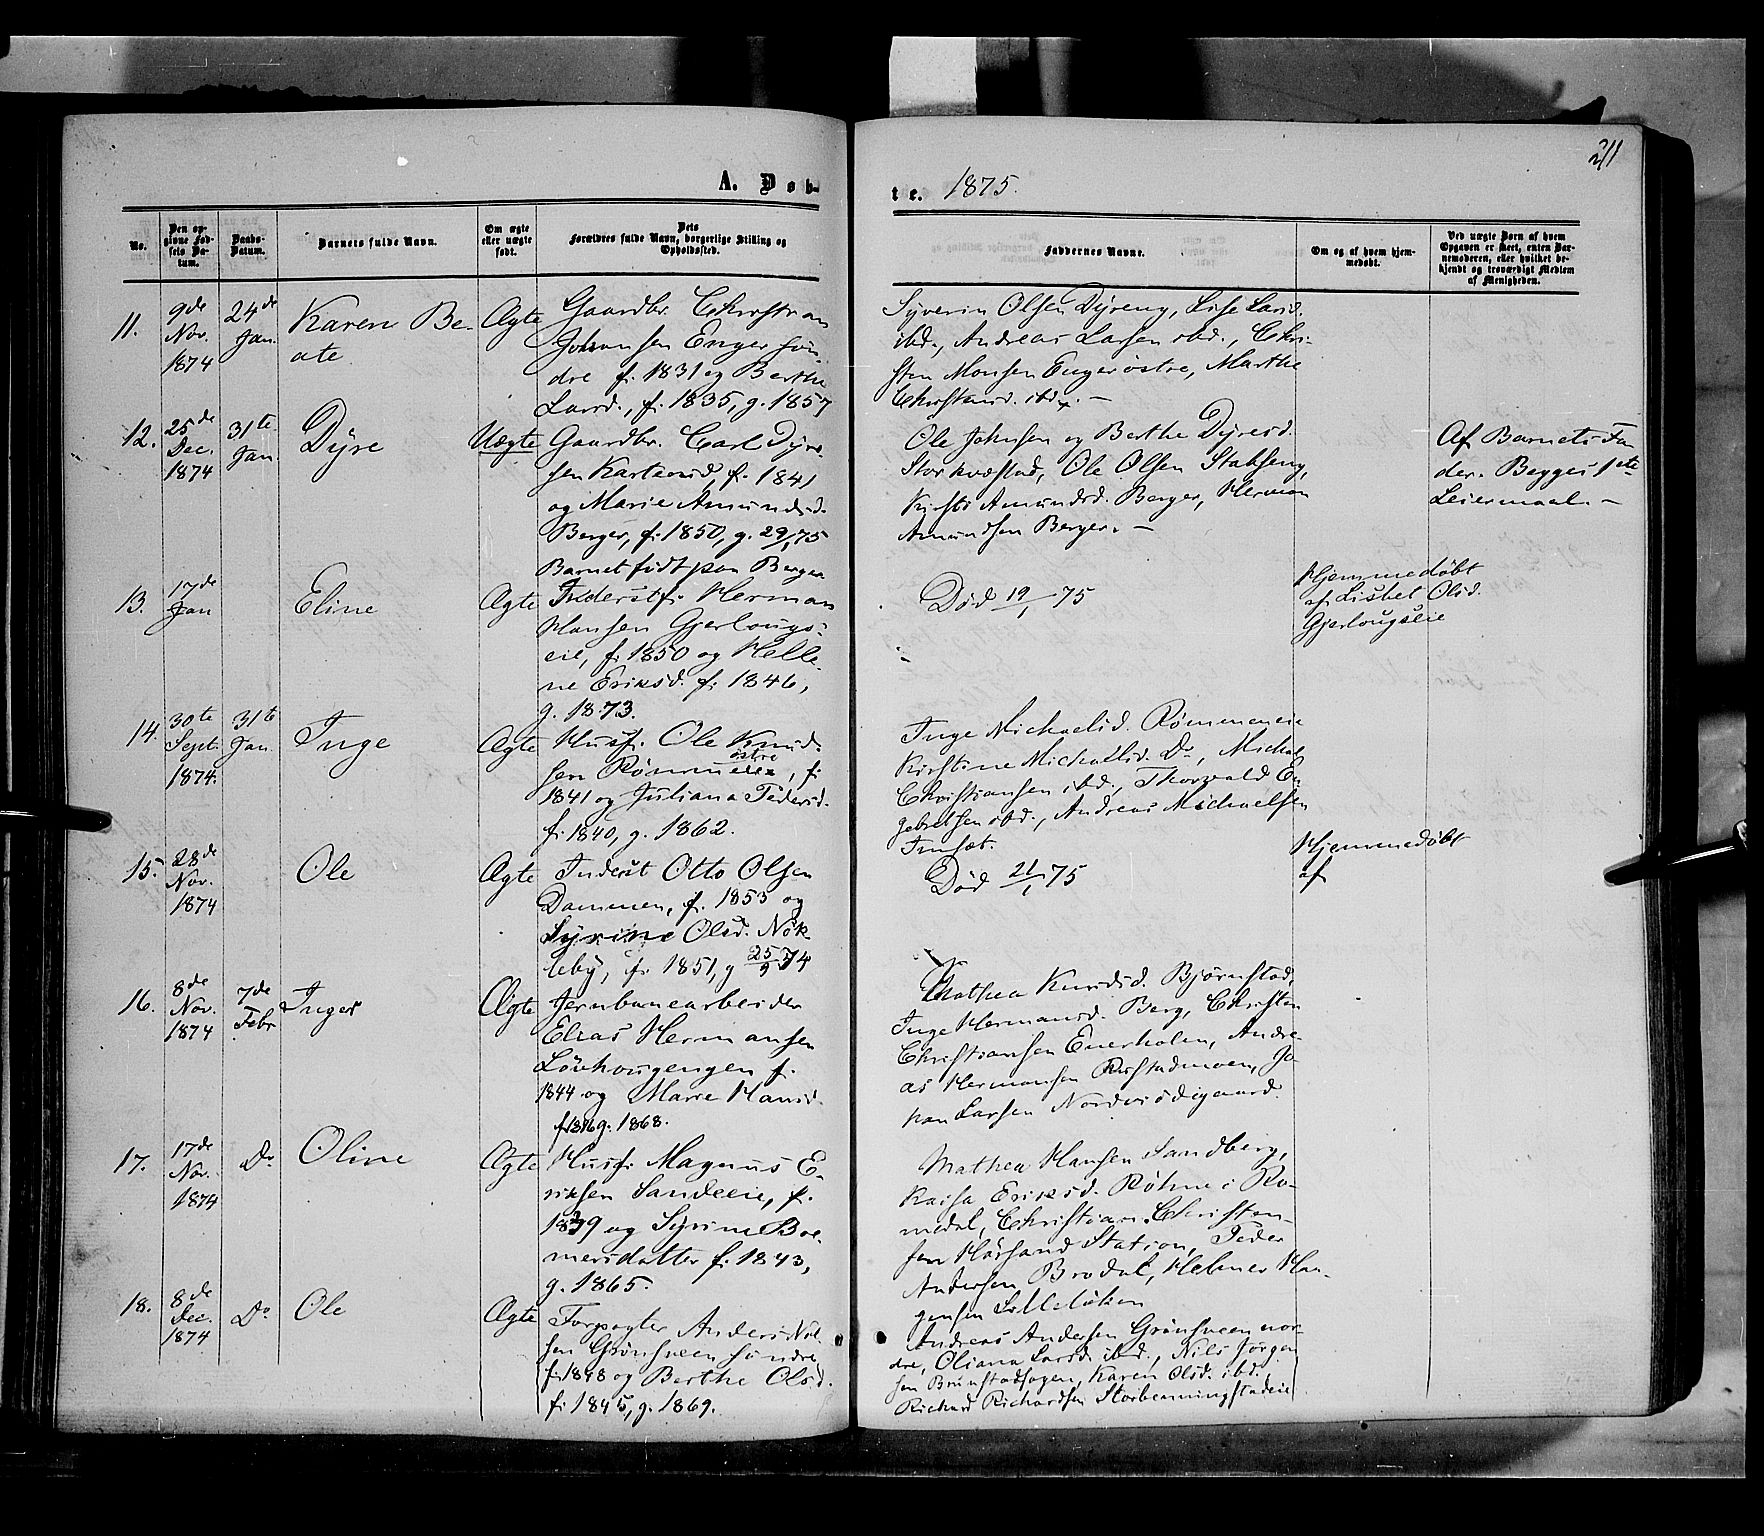 211
A. Døb-
te. 1875.
No.
Den opgivne Fødsels Datum.
Daabs-Datum.
Barnets fulde Navn.
Om ægte eller uægte født.
Dets Forældres fulde Navn, borgerlige Stilling og Opholdssted.
Faddernes Navne.
Om og af hvem hjemmedøbt.
Ved uægte Børn af hvem Opgaven er skeet, enten Barnemoderen, eller hvilket bekjendt og troværdigt Medlem af Menigheden.
11.
9de
Nov.
1874
24de
Jan.
Karen Be-
ate
Ægte
Gaardbr. Christian
Johansen Enger søn-
dre f. 1831 og Berthe
Larsd., f. 1835, g. 1857
Syverin Olsen Dyreng, Lise Larsd.
ibd., Andreas Larsen ibd., Chri-
sten Monsen Enger østre, Marthe
Christiansd. ibd. –
12.
25de
Dec.
1874
31te
Jan.
Dyre
Uægte
Gaardbr. Carl Dyre-
sen f. 1841
og Marie Amundsd.
Berger, f. 1850, g. 29/1 75
Barnet født paa Berger
Ole Johnsen og Berthe Dyresd.
Storkvæstad, Ole Olsen Stabseng,
Kirsti Amundsd. Berger, Herman
Amundsen Berger. –
Af Barnets Fa-
der. Begges 1ste
Leiermaal. –
13.
17de
Jan
Eline
Ægte
Inderstf. Herman
Hansen Gjerlougs-
eie, f. 1850 og Helle-
ne Eriksd. f. 1846,
g. 1873.
Død 19/1 75
Hjemmedøbt
af Lisbet Olsd.
Gjerlougseie
14.
30te
Sept.
1874.
31te
Jan.
Inge
Ægte
Husf. Ole Knud-
østre
sen f.
1841 og Juliana Pedersd.
f. 1840, g. 1862.
Inge Michaelsd.
Kirstine Michaelsd. Do, Michael
Christiansen ibd., Thorvald En-
gebretsen ibd., Andreas Michaelsen
Imset.
15.
28de
Nov.
1874
Ole
Ægte
Inderst Otto Olsen
Dammen, f. 1853 og
Syrine Olsd. Nøk-
leby, f. 1851, g 25/9 74
Død 21/1 75
Hjemmedøbt
af
16.
8de
Nov.
1874
7de
Febr.
Inger
Ægte
Jernbanearbeider
Elias Hermansen
Løvhougengen f.
1844 og Marie Hansd.
f. g. 1868.
Mathea Knudsd. Bjørnstad,
Inge Hermansd. Berg, Christen
Christiansen Enerholen, Andre-
as Hermansen Rustadmoen, Jo-
han Larsen Nordvisdigaard.
17.
17de
Nov.
1874
Do
Oline
Ægte
Husf. Magnus E-
riksen Sandeeie, f.
1839 og Syrine Bol-
mersdatter f. 1843,
g. 1865.
Mathea Hansen Sandberg,
Kaisa Eriksd. Røhne i Ro-
medal, Christian Christen-
sen Hørsand Station, Peder
Andersen Brodal, Helmer Han-
gensen Lillelöken
18.
8de
Dec.
1874
Do
Ole
Ægte
Forpagter Anders Niel-
sen Grønsveen søndre
f. 1848 og Berthe Olsd.
f. 1845, g. 1869.
Andreas Andersen Grønsveen nor-
dre, Oliana Larsd. ibd., Nils Jørgen-
sen Brunstadhagen, Karen Olsd. ibd.
Richard Richardsen Storbenningstadeie